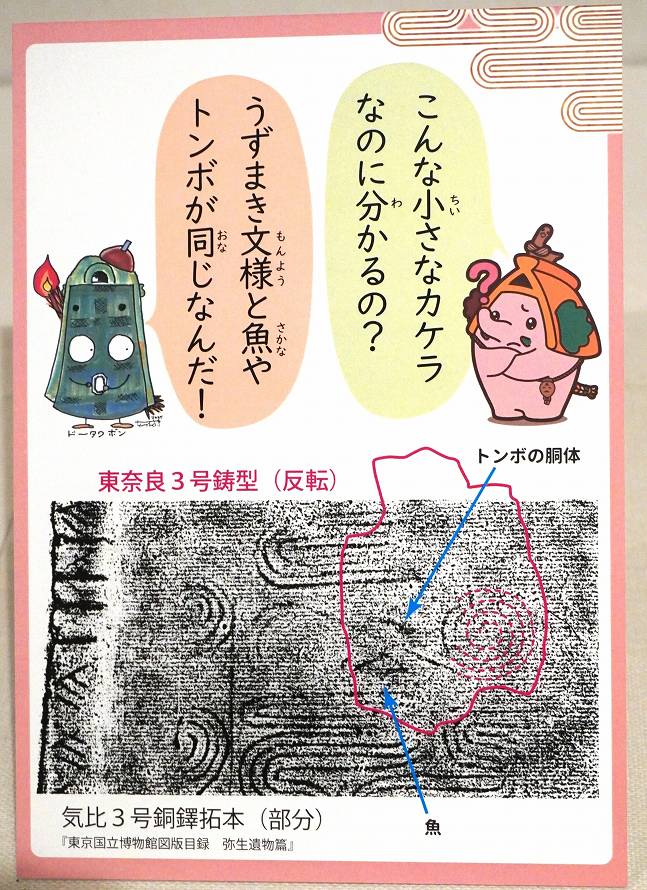 こんな小さなカケラ
なのに分かるの？
うずまき文様と魚や
トンボが同じなんだ！
ドータクポン
トンボの胴体
東奈良３号鋳型（反転）
魚
気比３号銅鐸拓本（部分）
『東京国立博物館図版目録　弥生遺物篇』